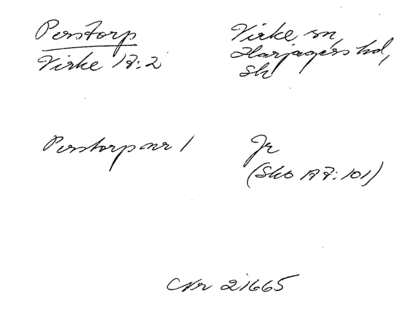 Perstorp
Virke 17:2
Virke sn,
Harjagers hd,
Sk
Perstorp nr 1
Jr
(SkO 17:101)
Nr 21665